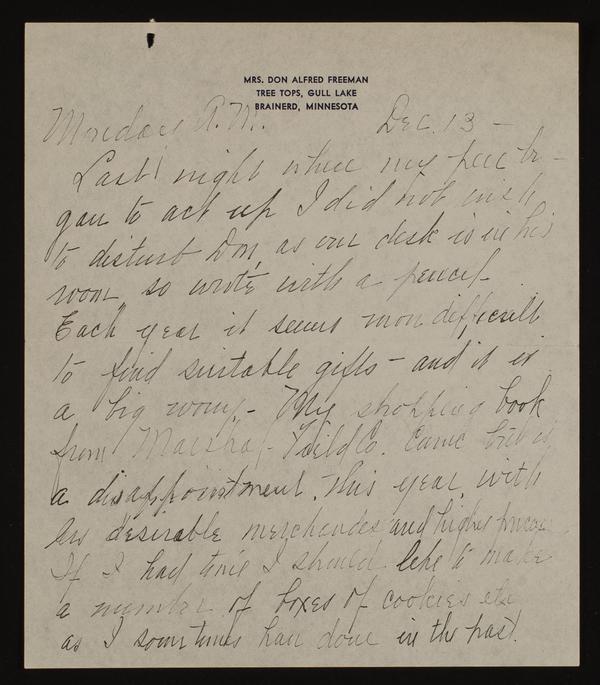 MRS. DON ALFRED FREEMAN
TREE TOPS, GULL LAKE
BRAINERD, MINNESOTA
Monday A.M. Dec. 13 -
Last night when my pen be-
gan to act up I did not wish
to disturb Don, as our desk is in his
room so wrote with a pencil.
Each year it seems more difficult
to find suitable gifts - and it is
a big worry. - My shopping book
from Marshal Field Co. came but is
a disappointment this year with
less desirable merchandes and higher prices
If I had time I should like to make
a number of boxes of cookies etc
as I sometimes have done in the past.